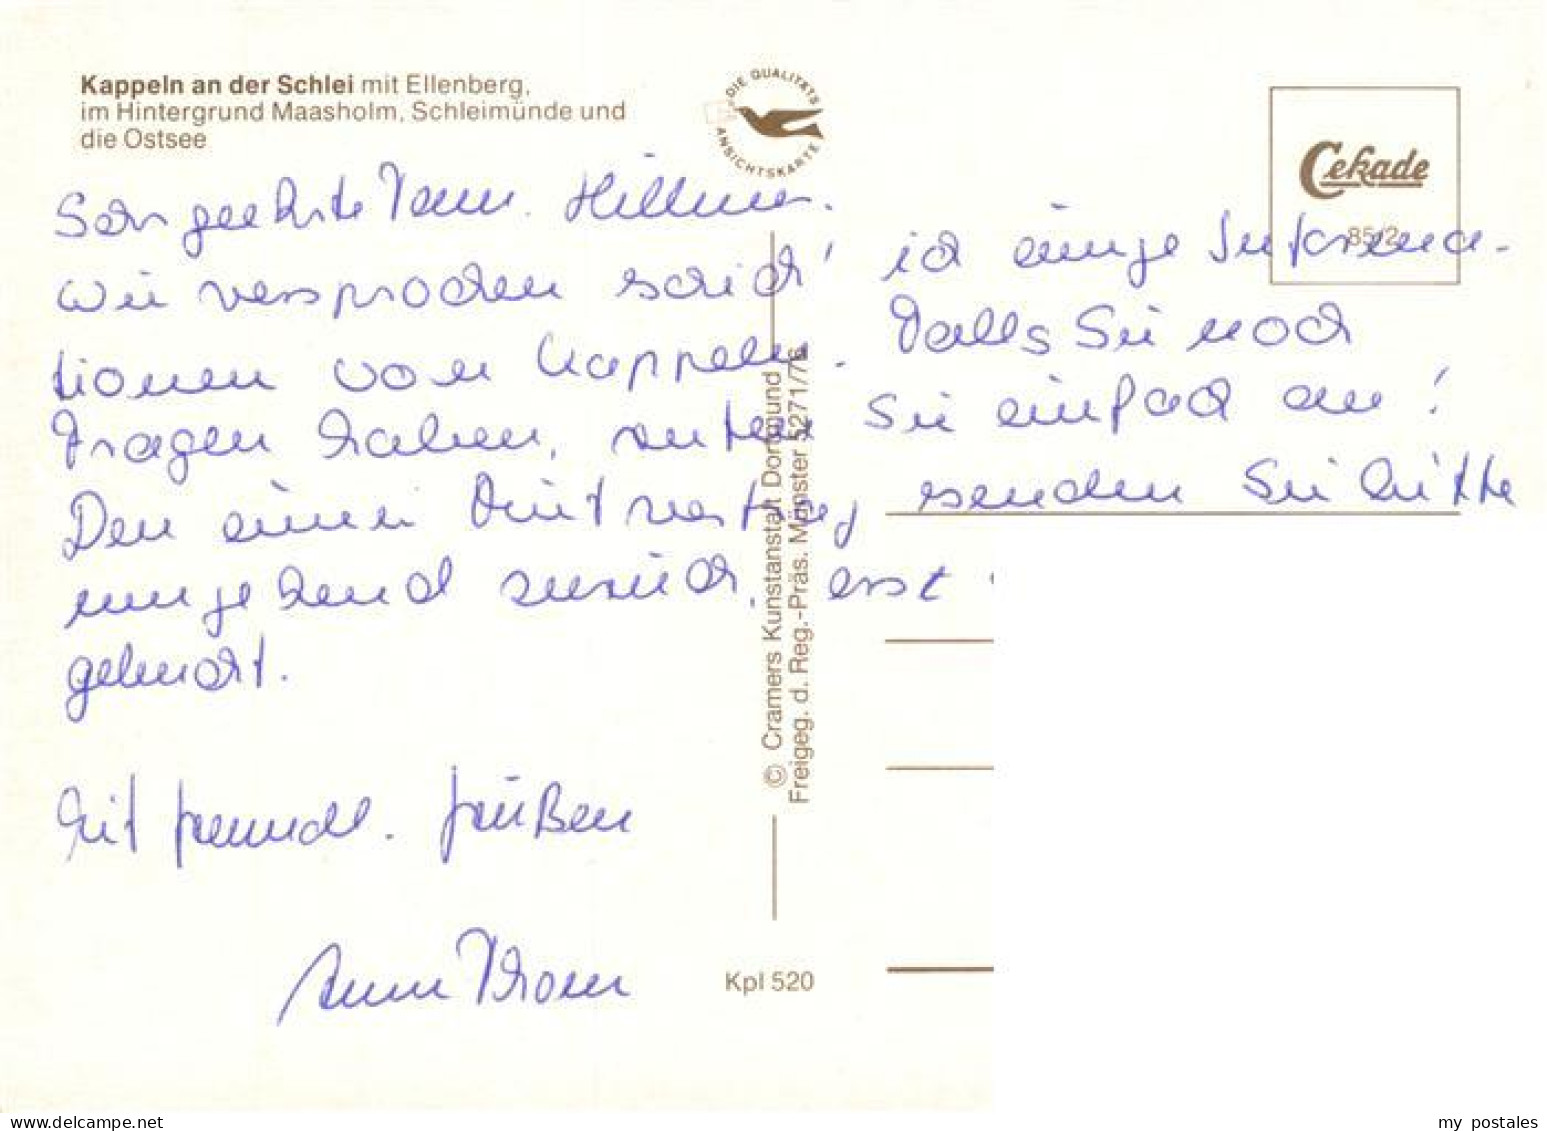 Kappeln an der Schlei mit Ellenberg,
im Hintergrund Maasholm, Schleimünde und
die Ostsee
DIE QUALITÄTS
ANSICHTSKARTE
Cekade
85/2
Sehr geehrte Fam. Hillmer.
Wie versprochen schick' ich einige Informa-
tionen von Kappeln. Falls Sie noch
Fragen haben, rufen Sie einfach an!
Den einen Mietvertrag senden Sie bitte
umgehend zurück, erst
gebucht.
Mit freundl. Grüßen
© Cramers Kunstanstalt Dortmund
Freigeg. d. Reg.-Präs. Münster 5271/76
Kpl 520
my postales